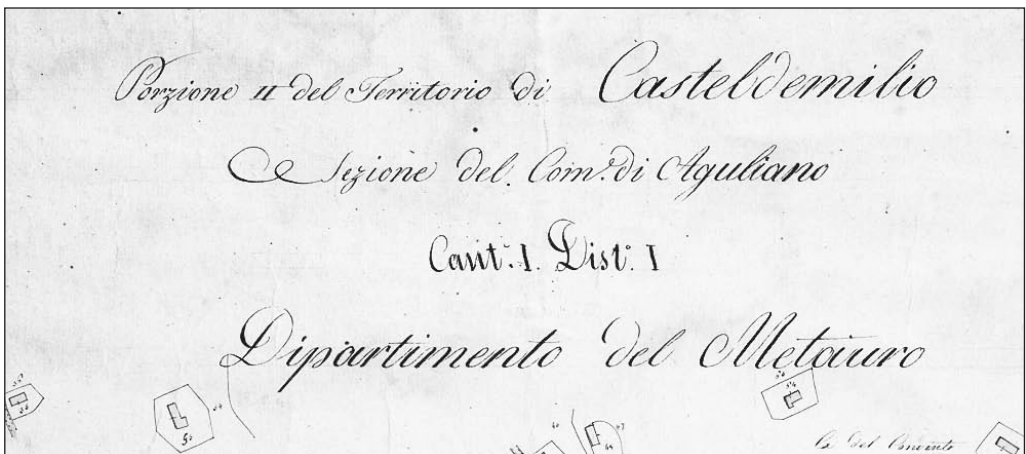 Porzione II del Territorio di Casteldemilio
Sezione del Com.e di Aguliano
Cant.e I Dist.o I
Dipartimento del Metauro
50